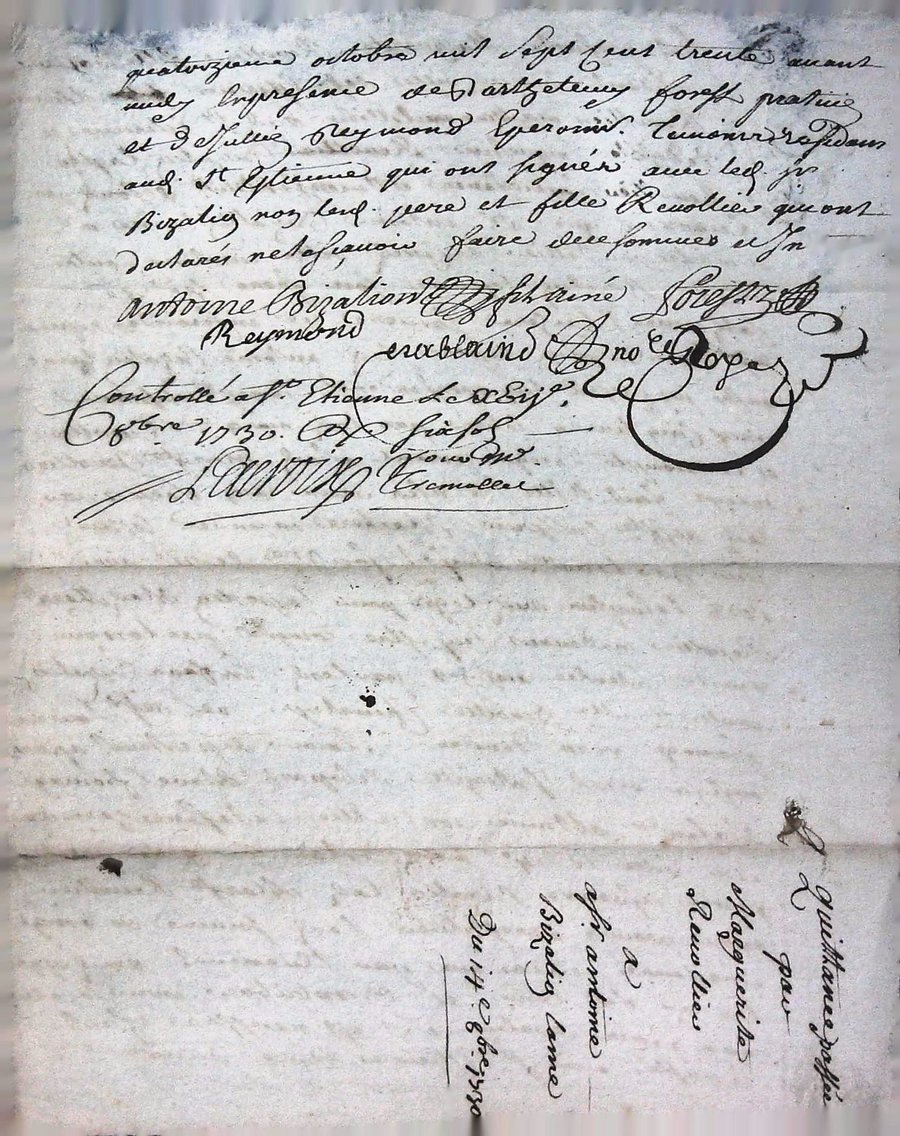 quatorzieme octobre mil sept cent trente avant
midy en presence de Barthelemy forest praticien
et de Jullien Reymond Eperonr. residans
aud. St. Estienne qui ont signés avec led. sr.
Bizalion non lesd. pere et fille Revollier qui ont
declarés ne le sçavoir faire de ce sommés et In
Antoine Bizalion fils ainé Forest
Reymond
Chablaind no.re Royal
Controllé a St. Etienne Le
8bre 1730. R six sols
Lacroix pour Mr.
Tremollet
Quittance passée
par
Marguerite
Revollier
a
a Sr. antoine
Bizalion l'ainé
Du 14e. 8bre. 1730